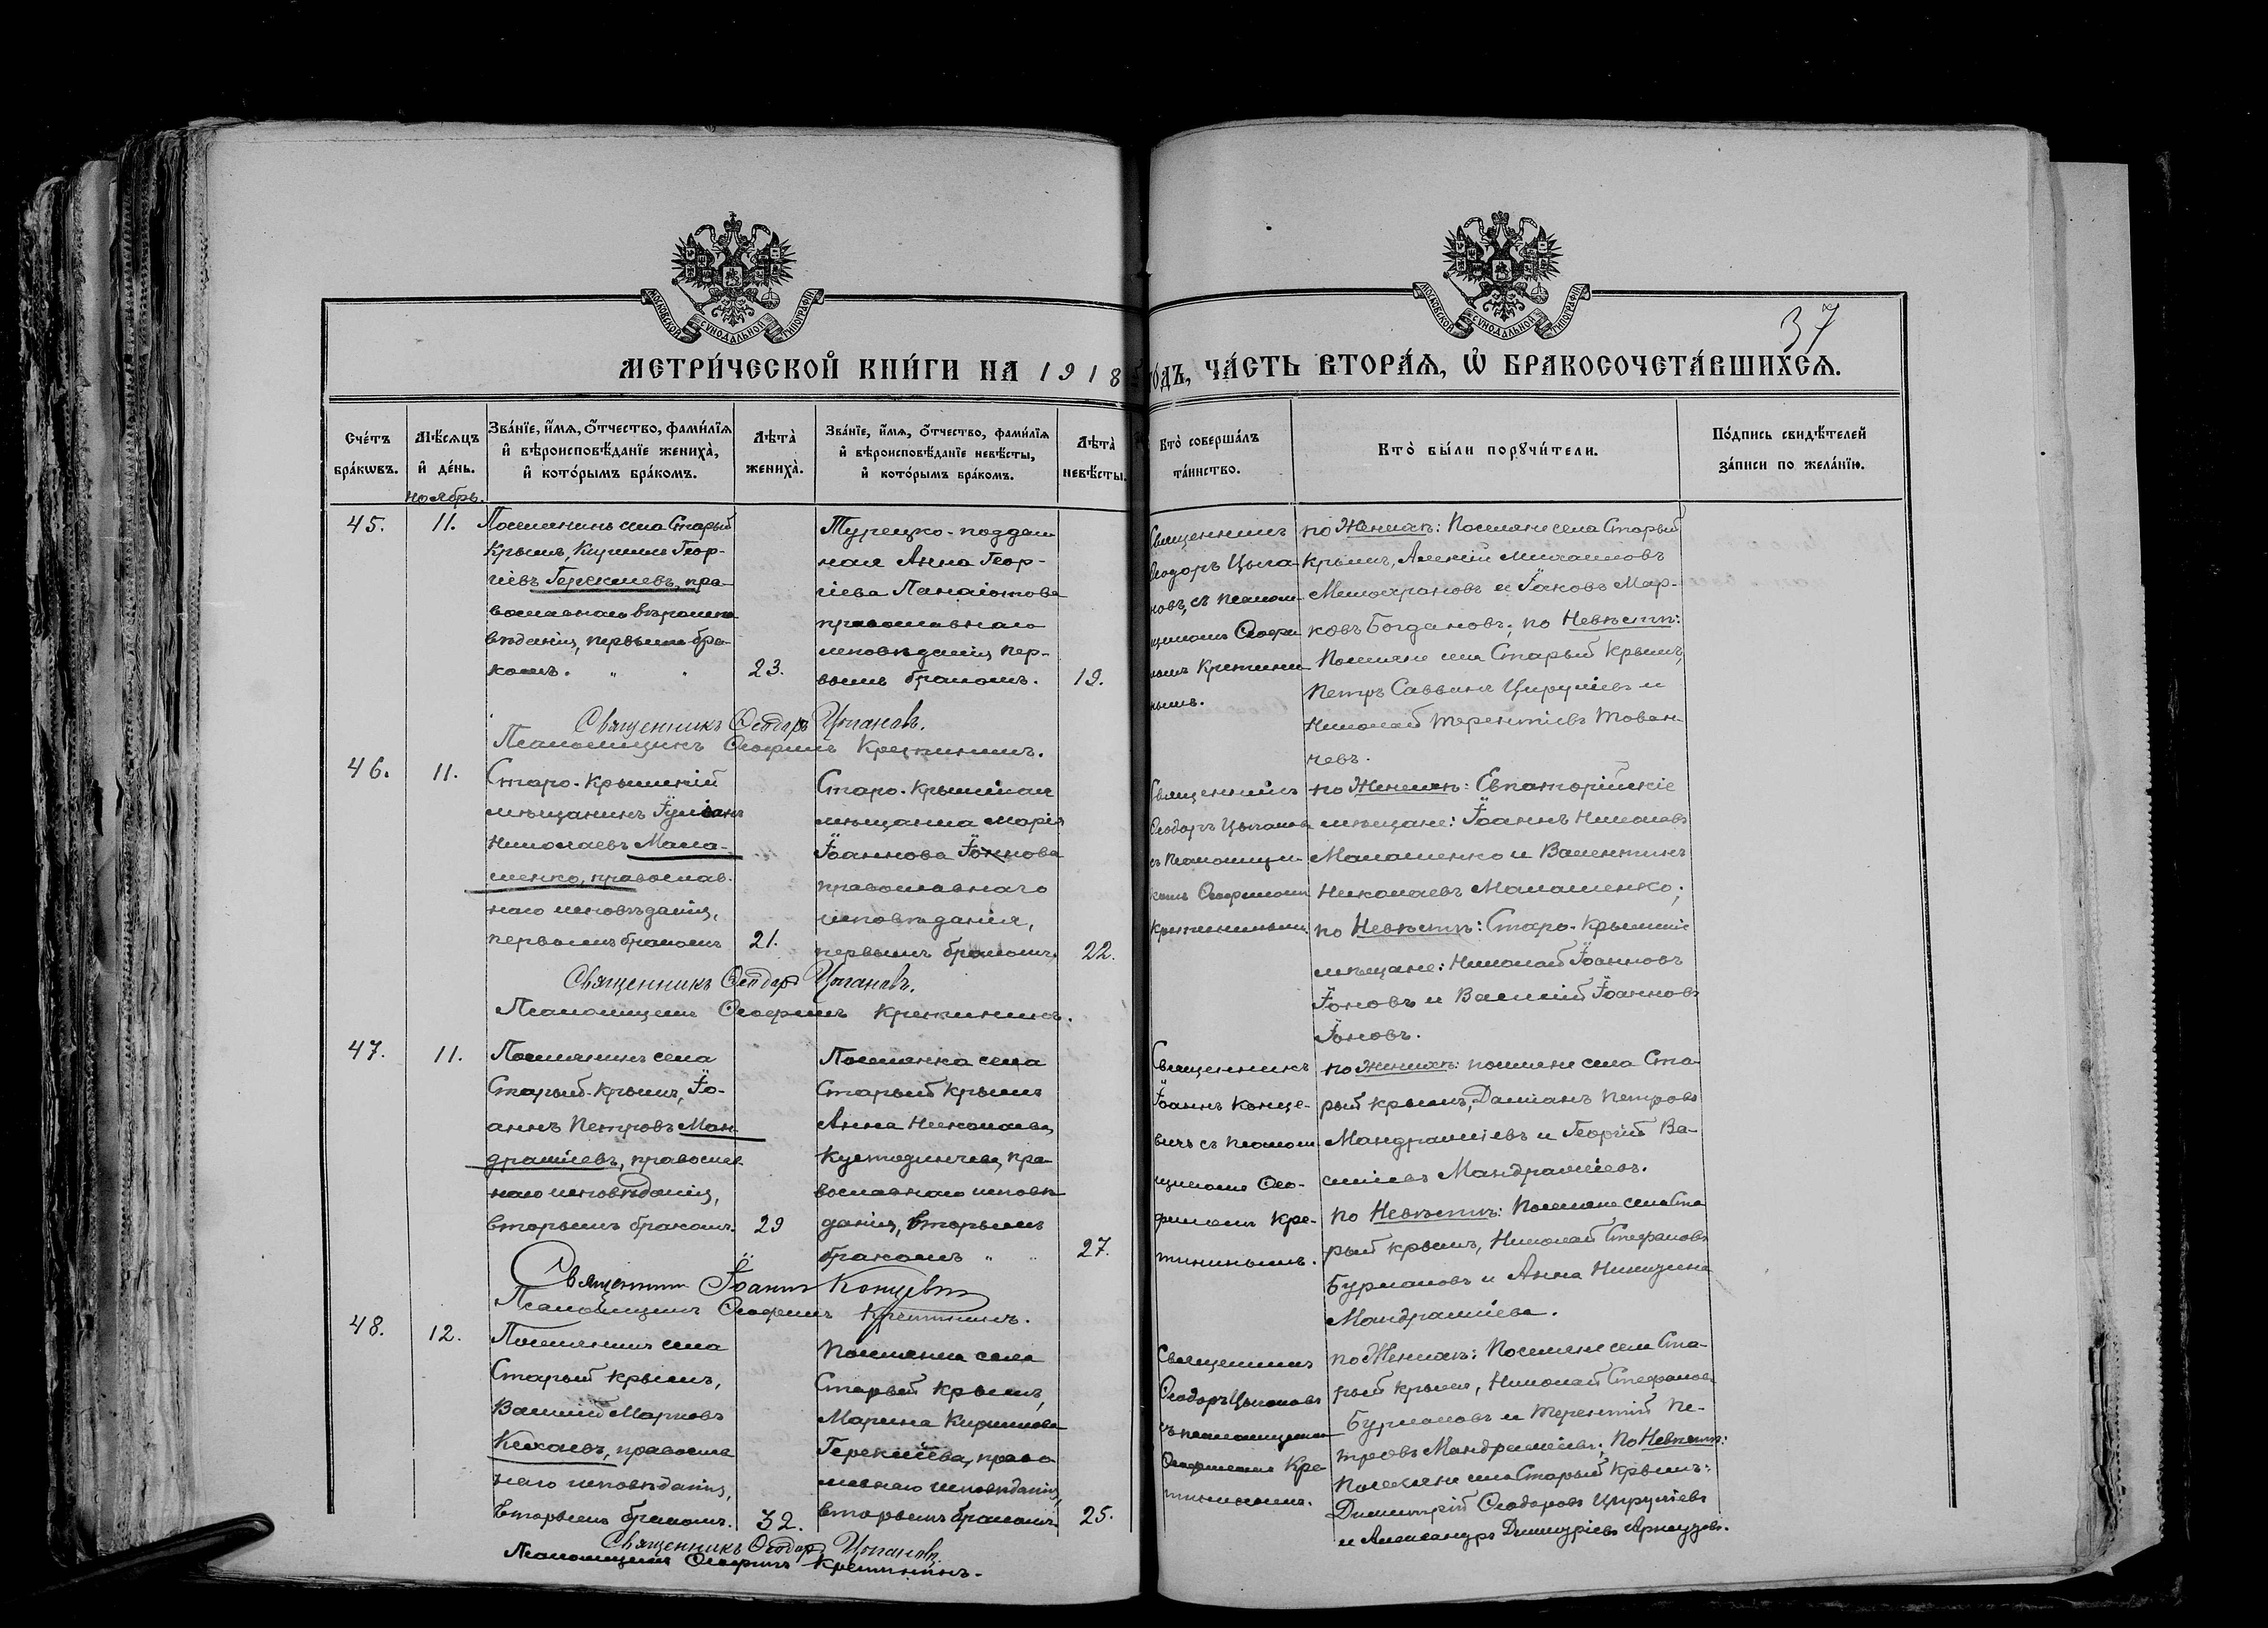 МОСКОВСКОЙ СѴНОДАЛЬНОЙ ТИПОГРАФІИ
МОСКОВСКОЙ СѴНОДАЛЬНОЙ ТИПОГРАФІИ
37
МЕТРИ́ЧЕСКОЙ КНИ́ГИ НА 1918 го́дъ, ЧА́СТЬ ВТОРА́Я, Ѡ҆ БРАКОСОЧЕТА́ВШИХСЯ.
Сче́тъ бра́кѡвъ.
Мѣ́сяцъ и҆ де́нь.
Зва́нїе, и҆́мя, ѻ҆́тчество, фами́лїя и҆ вѣроисповѣ́данїе жениха̀, и҆ кото́рымъ бра́комъ.
Лѣта̀ жениха̀.
Зва́нїе, и҆́мя, ѻ҆́тчество, фами́лїя и҆ вѣроисповѣ́данїе невѣ́сты, и҆ кото́рымъ бра́комъ.
Лѣта̀ невѣ́сты.
Кто̀ соверша́лъ та́инство.
Кто̀ бы́ли порꙋчи́тели.
По́дпись свидѣ́телей за́писи по жела́нїю.
ноябрь.
45.
11.
Поселянинъ села Старый
Крымъ, Кириллъ Геор-
гіевъ Герекліевъ, пра-
вославнаго
вѣданія, первымъ бра-
комъ. " "
23.
Турецко-поддан
ная Анна Геор-
гіева Панаіотова
православнаго
исповѣданія, пер-
вымъ бракомъ.
19.
Священникъ
Ѳеодоръ Цыга-
новъ, съ псалом-
щикомъ Ѳеофи
ломъ Кретини
нымъ.
по Женихѣ: Поселяне села Старый
Крымъ, Алексій Михаиловъ
и Іаковъ Мар-
ковъ Богдановъ; по Невѣстѣ:
Поселяне села Старый Крымъ,
Петръ Саввинъ Цируліевъ и
Николай Терентіевъ Тован-
чевъ.
Священникъ Ѳеодоръ Цыгановъ.
Псаломщикъ Ѳеофилъ Кретининъ.
46.
11.
Старо-Крымскій
мѣщанинъ Іуліанъ
Николаевъ Мала-
шенко, православ-
наго исповѣданія,
первымъ бракомъ
21.
Старо-Крымская
мѣщанка Марія
Іоаннова Іоннова
православнаго
исповѣданія,
первымъ бракомъ.
22.
Священникъ
Ѳеодоръ Цыгановъ
съ псаломщи-
комъ Ѳеофиломъ
Кретининымъ.
по Женихѣ: Евпаторійскіе
мѣщане: Іоаннъ Николаевъ
Малашенко и Валентинъ
Николаевъ Малашенко;
по Невѣстѣ: Старо-Крымскіе
мѣщане: Николай Іоанновъ
Іоновъ и Василій Іоанновъ
Іоновъ.
Священникъ Ѳеодоръ Цыгановъ.
Псаломщикъ Ѳеофилъ Кретининъ.
47.
11.
Поселянинъ села
Старый-Крымъ, Іо-
аннъ Петровъ Ман-
драшіевъ, православ
наго исповѣданія,
вторымъ бракомъ.
29
Поселянка села
Старый Крымъ
Анна Николаева
Кустодинчева, пра-
вославнаго исповѣ
данія, вторымъ
бракомъ " "
27.
Священникъ
Іоаннъ Конце-
вичъ съ псалом
щикомъ Ѳео-
филомъ Кре-
тининымъ.
по Женихѣ: поселяне села Ста-
рый Крымъ, Даміанъ Петровъ
Мандрашіевъ и Георгій Ва-
силіевъ Мандрашіевъ.
по Невѣстѣ: Поселяне села Ста
рый Крымъ, Николай Стефановъ
Бурлаковъ и Анна Никизина
Мандрашіева.
Священникъ Іоаннъ Концевичъ
Псаломщикъ Ѳеофилъ Кретининъ.
48.
12.
Поселянинъ села
Старый Крымъ,
Василій Марковъ
Кехаевъ, правосла
наго исповѣданія,
вторымъ бракомъ.
32.
Поселянка села
Старый Крымъ,
Марина Кириллова
Герекліева, право
славнаго исповѣданія,
вторымъ бракомъ.
25.
Священникъ
Ѳеодоръ Цыгановъ
съ псаломщикомъ
Ѳеофиломъ Кре
тининымъ.
по Женихѣ: Поселяне села Ста-
рый Крымъ, Николай Стефановъ
Бурлаковъ и Терентій Пе-
тровъ Мандрашіевъ; по Невѣстѣ:
Поселяне села Старый Крымъ:
Димитрій Ѳеодоровъ Цируліевъ
и Александръ Димитріевъ Арнаузовъ.
Священникъ Ѳеодоръ Цыгановъ.
Псаломщикъ Ѳеофилъ Кретининъ.